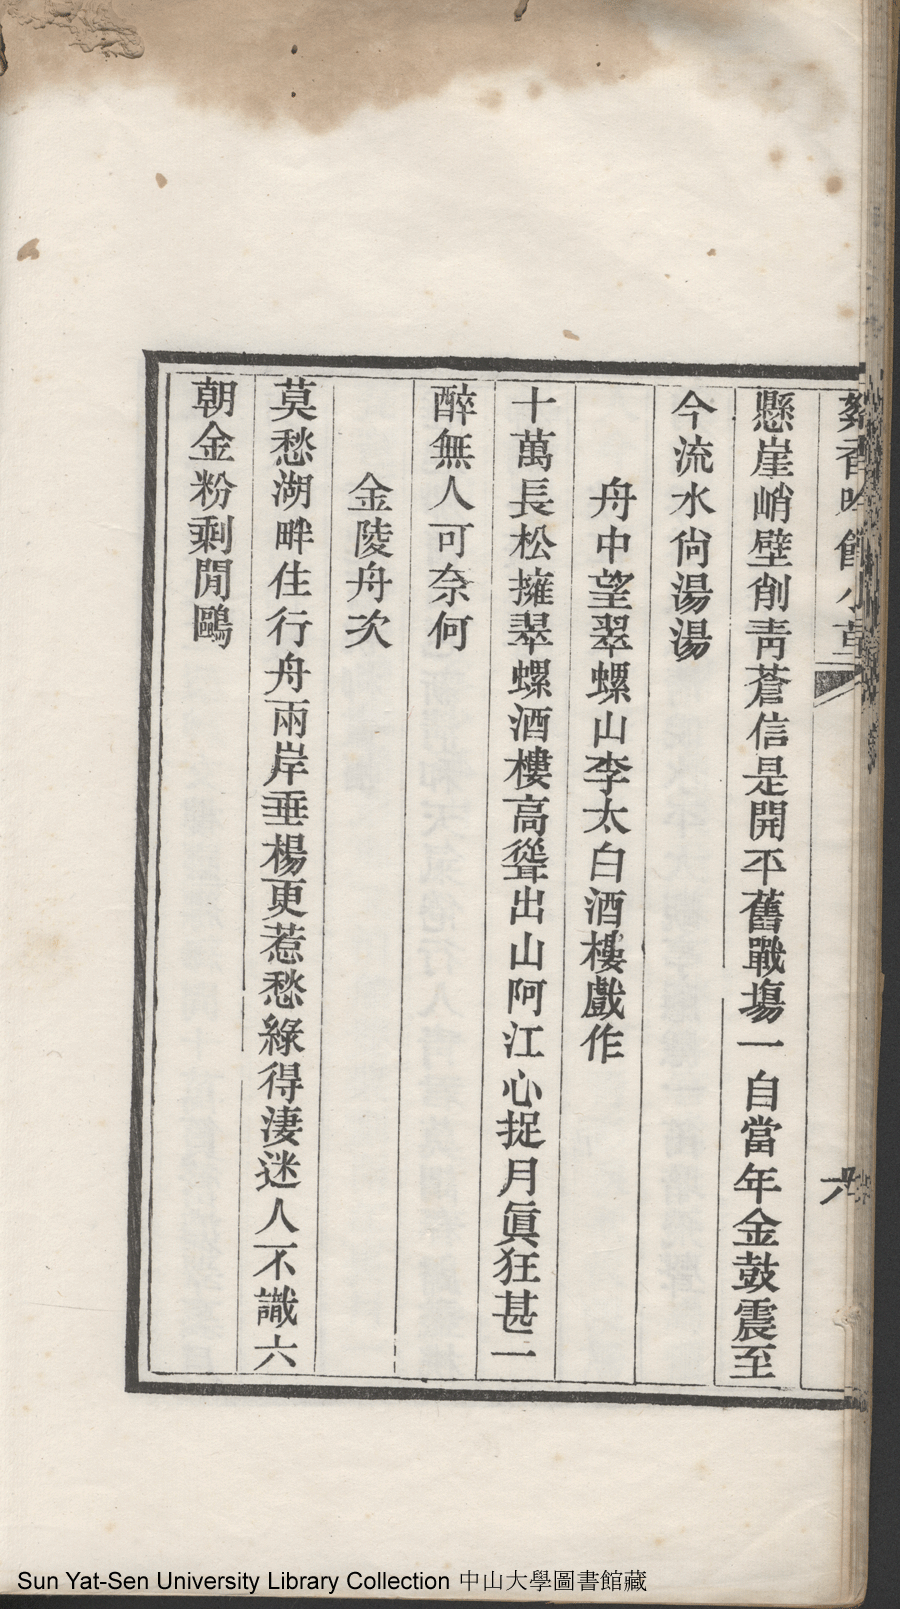 香吟館小草
六
懸崖峭壁削靑蒼信是開平舊戰塲一自當年金鼓震至
今流水尙湯湯
舟中望翠螺山李太白酒樓戲作
十萬長松擁翠螺酒樓高聳出山阿江心捉月眞狂甚一
醉無人可奈何
金陵舟次
莫愁湖畔住行舟兩岸垂楊更惹愁綠得淒迷人不識六
朝金粉剩閒鷗
Sun Yat-Sen University Library Collection 中山大學圖書館藏